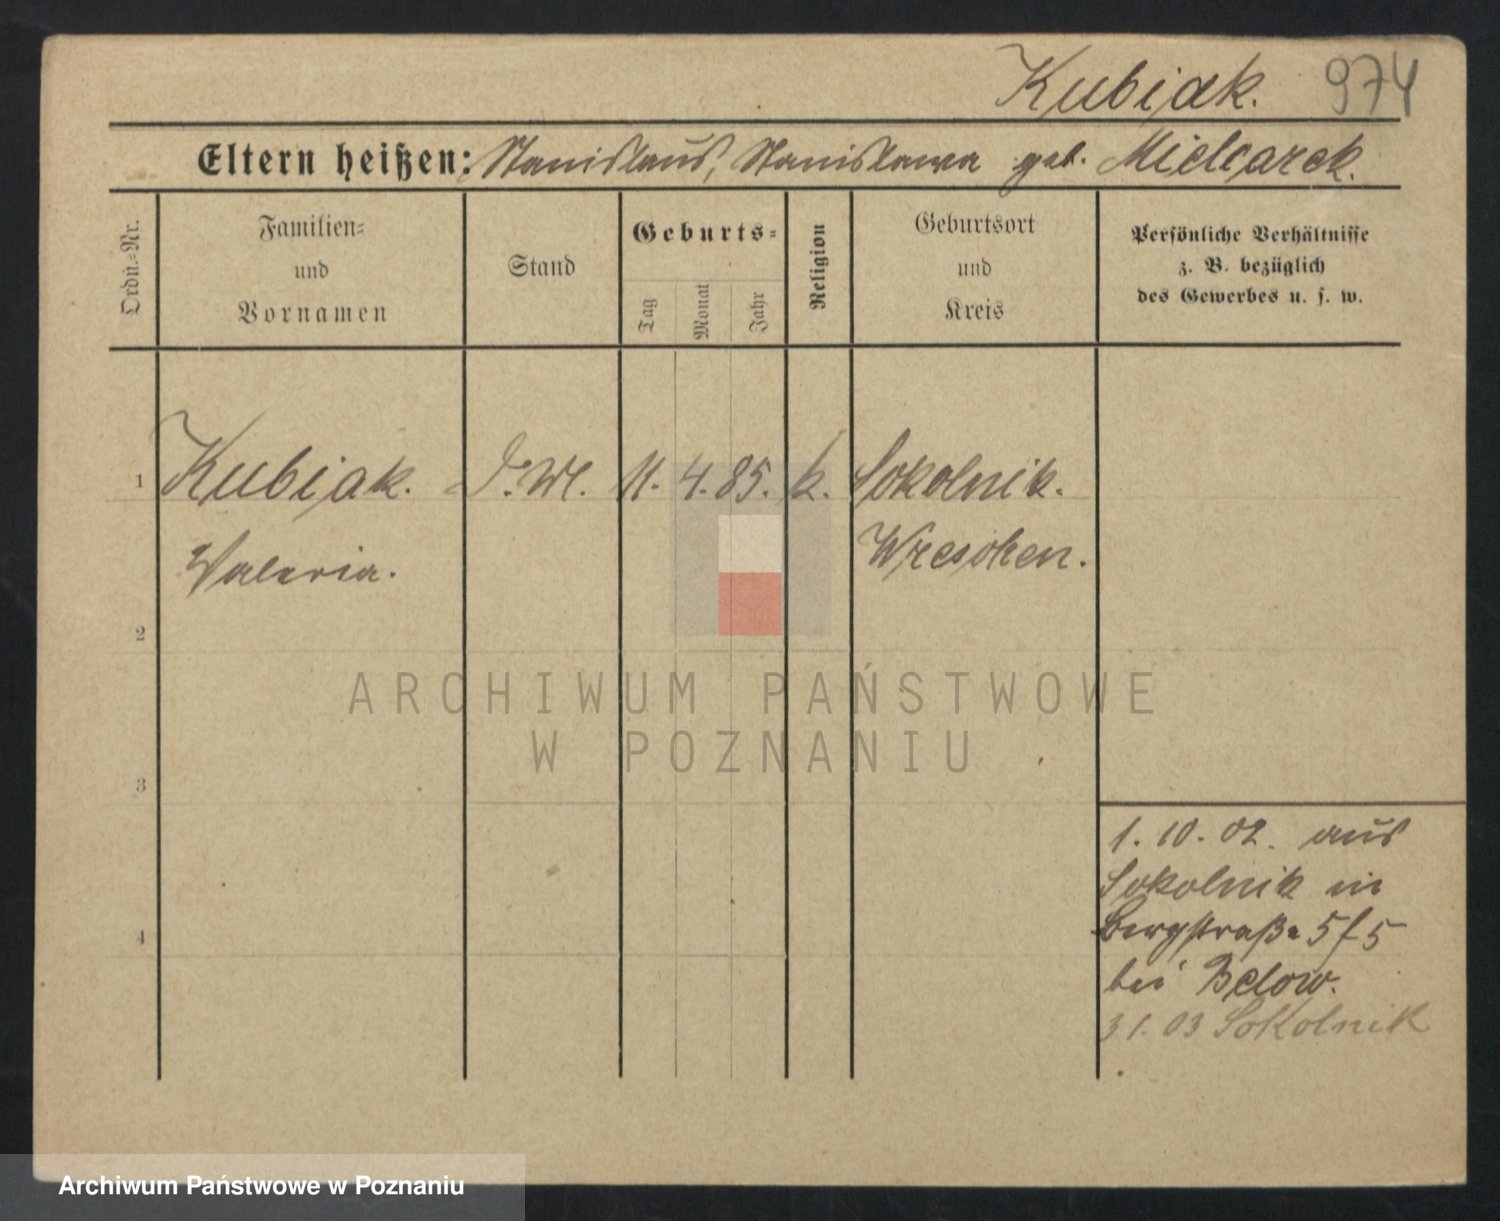 Kubiak. 974
Eltern heißen: Stanislaus, Stanislawa geb. Mielcarek.
Ordn.-Nr.
Familien-
und
Vornamen
Stand
Geburts-
Tag
Monat
Jahr
Religion
Geburtsort
und
Kreis
Persönliche Verhältnisse
z. B. bezüglich
des Gewerbes u. s. w.
1 Kubiak. 11. 4. 85. k. Sokolnik.
Valeria. Wreschen.
2
3
4
ARCHIWUM PAŃSTWOWE
W POZNANIU
1. 10. 02. aus
Sokolnik in
Bergstraße 5 f 5
bei Below.
3 1. 03 Sokolnik
Archiwum Państwowe w Poznaniu